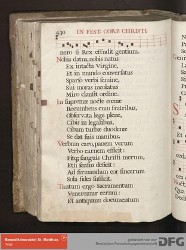 IN FESTO CORP. CHRISTI.
nero si Rex effudit gentium.
Nobis datus, nobis natus
Ex intacta Virgine,
Et in mundo conversatus
Sparso verbi semine,
Sui moras incolatus
Miro clausit ordine.
In supremæ nocte coenæ
Recumbens cum fratribus,
Observata lege plene,
Cibis in legalibus,
Cibum turbæ duodenæ
Se dat suis manibus.
Verbum caro, panem verum
Verbo carnem efficit:
Fitq; sanguis Christi merum,
Et si sensus deficit:
Ad firmandum cor sincerum
Sola fides sufficit.
Tantum ergo Sacramentum
Veneremur cernui:
Et antiquum documentum
gefördert von der
DFG